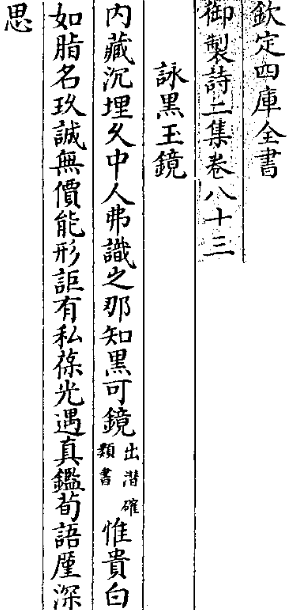 欽定四庫全書
御製詩二集卷八十三
詠黑玉鏡
内藏沉埋久中人弗識之那知黑可鏡出潛確類書惟貴白
如脂名玖誠無價能形詎有私葆光遇真鑑荀語厪深
思